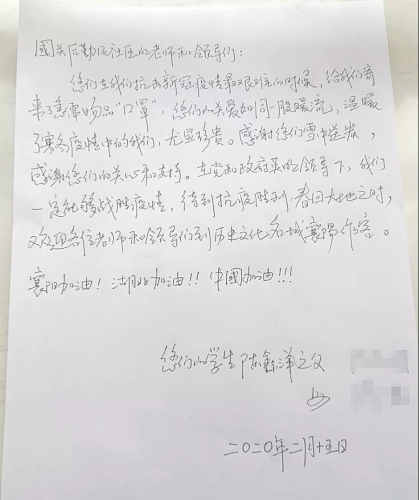 國关后勤及社区的老师和领导们：
您们在我们抗击新冠疫情最艰难的时候，给我们寄
来了急需物品“口罩”，您们的关爱如同一股暖流，温暖
了寒冬疫情中的我们，尤显珍贵。感谢您们雪中送炭，
感谢您们的关心和支持。在党和政府英的领导下，我们
一定能够战胜疫情，待到抗疫胜利、春回大地之时，
欢迎各位老师和领导们到历史文化名城襄陽作客。
襄陽加油！湖北加油！！中國加油！！！
您们的学生陈鑫洋之父
二〇二〇年二月十五日